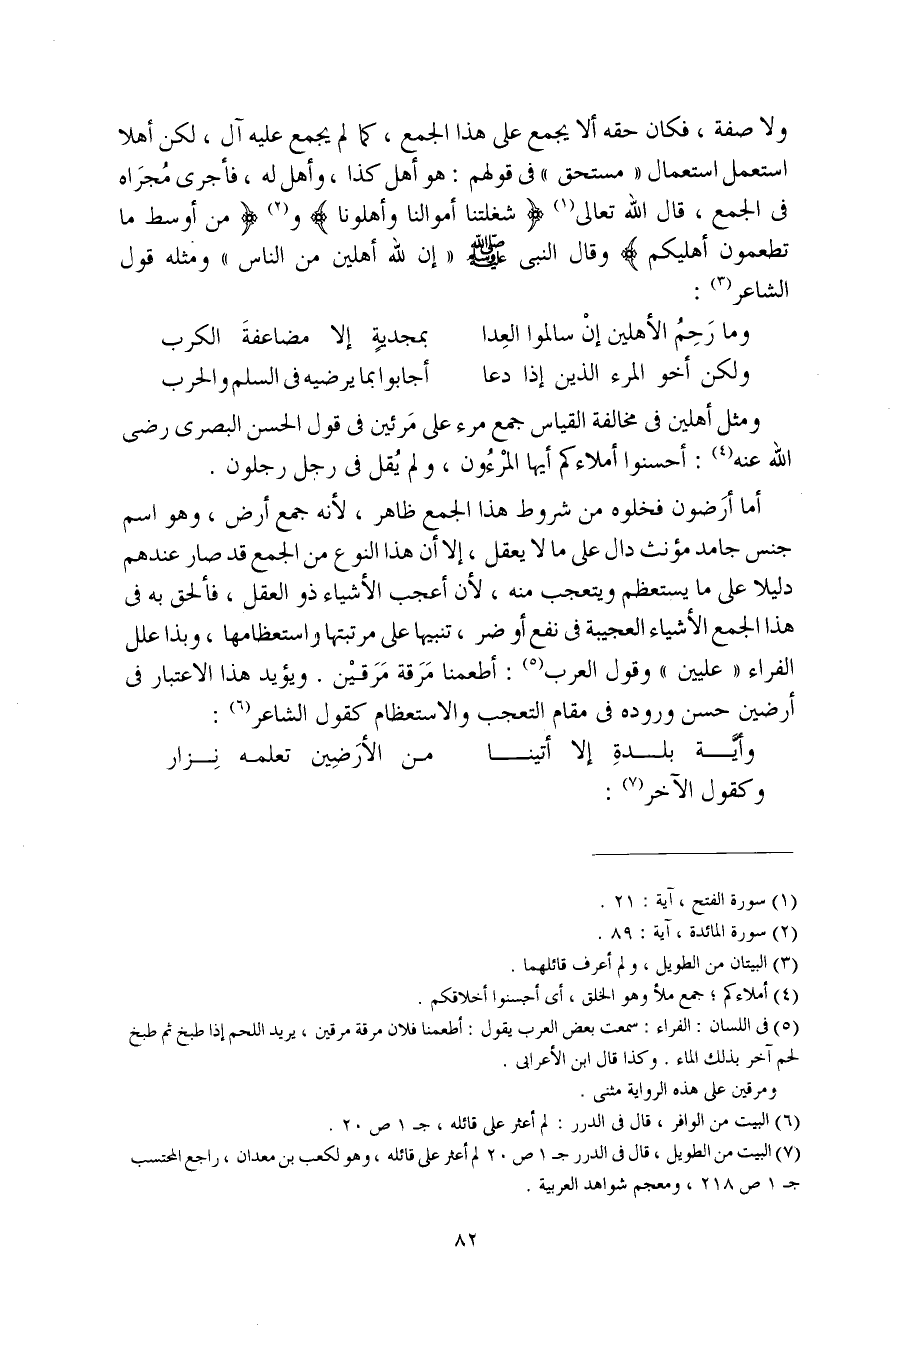 ولا صفة ، فكان حقه ألا يجمع على هذا الجمع ، كما لم يجمع عليه آل ، لكن أهلا
استعمل استعمال « مستحق » فى قولهم : هو أهل كذا ، وأهل له ، فأجرى مُجرَاه
فى الجمع ، قال الله تعالى(١) ﴿ شغلتنا أموالنا وأهلونا ﴾ و(٢) ﴿ من أوسط ما
تطعمون أهليكم ﴾ وقال النبى ﷺ « إن لله أهلين من الناس » ومثله قول
الشاعر(٣) :
وما رَحِمُ الأهلين إنْ سالموا العِدا بمجديةٍ إلا مضاعفةَ الكرب
ولكن أخو المرء الذين إذا دعا أجابوا بما يرضيه فى السلم والحرب
ومثل أهلين فى مخالفة القياس جمع مرء على مَرئين فى قول الحسن البصرى رضى
الله عنه(٤) : أحسنوا أملاءكم أيها المرْءُون ، ولم يُقل فى رجل رجلون .
أما أرَضون فخلوه من شروط هذا الجمع ظاهر ، لأنه جمع أرض ، وهو اسم
جنس جامد مؤنث دال على ما لا يعقل ، إلا أن هذا النوع من الجمع قد صار عندهم
دليلا على ما يستعظم ويتعجب منه ، لأن أعجب الأشياء ذو العقل ، فألحق به فى
هذا الجمع الأشياء العجيبة فى نفع أو ضر ، تنبيها على مرتبتها واستعظامها ، وبذا علل
الفراء « عليين » وقول العرب(٥) : أطعمنا مَرَقة مَرَقيْن . ويؤيد هذا الاعتبار فى
أرضين حسن وروده فى مقام التعجب والاستعظام كقول الشاعر(٦) :
وأيَّــة بلــدةِ إلا أتينــا مـن الأرَضِين تعلمه نِــزار
وكقول الآخر(٧) :
(١) سورة الفتح ، آية : ٢١ .
(٢) سورة المائدة ، آية : ٨٩ .
(٣) البيتان من الطويل ، ولم أعرف قائلهما .
(٤) أملاءكم ؛ جمع ملأ وهو الخلق ، أى أحسنوا أخلاقكم .
(٥) فى اللسان : الفراء : سمعت بعض العرب يقول : أطعمنا فلان مرقة مرقين ، يريد اللحم إذا طبخ ثم طبخ
لحم آخر بذلك الماء . وكذا قال ابن الأعرابى .
ومرقين على هذه الرواية مثنى .
(٦) البيت من الوافر ، قال فى الدرر : لم أعثر على قائله ، جـ ١ ص ٢٠ .
(٧) البيت من الطويل ، قال فى الدرر جـ ١ ص ٢٠ لم أعثر على قائله ، وهو لكعب بن معدان ، راجع المحتسب
جـ ١ ص ٢١٨ ، ومعجم شواهد العربية .
٨٢